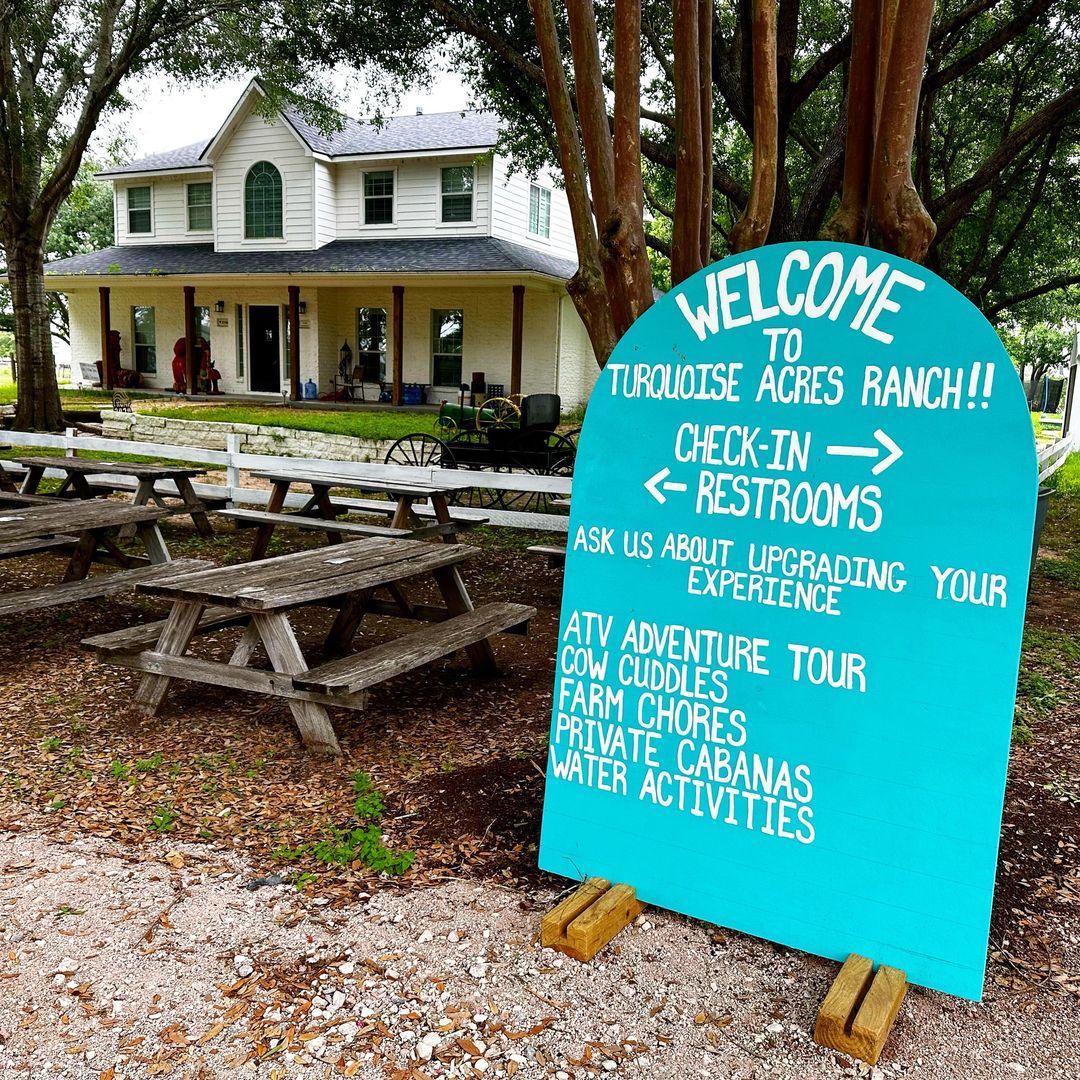 WELCOME
TO
TURQUOISE ACRES RANCH!!
CHECK-IN →
← RESTROOMS
ASK US ABOUT UPGRADING YOUR
EXPERIENCE
ATV ADVENTURE TOUR
COW CUDDLES
FARM CHORES
PRIVATE CABANAS
WATER ACTIVITIES